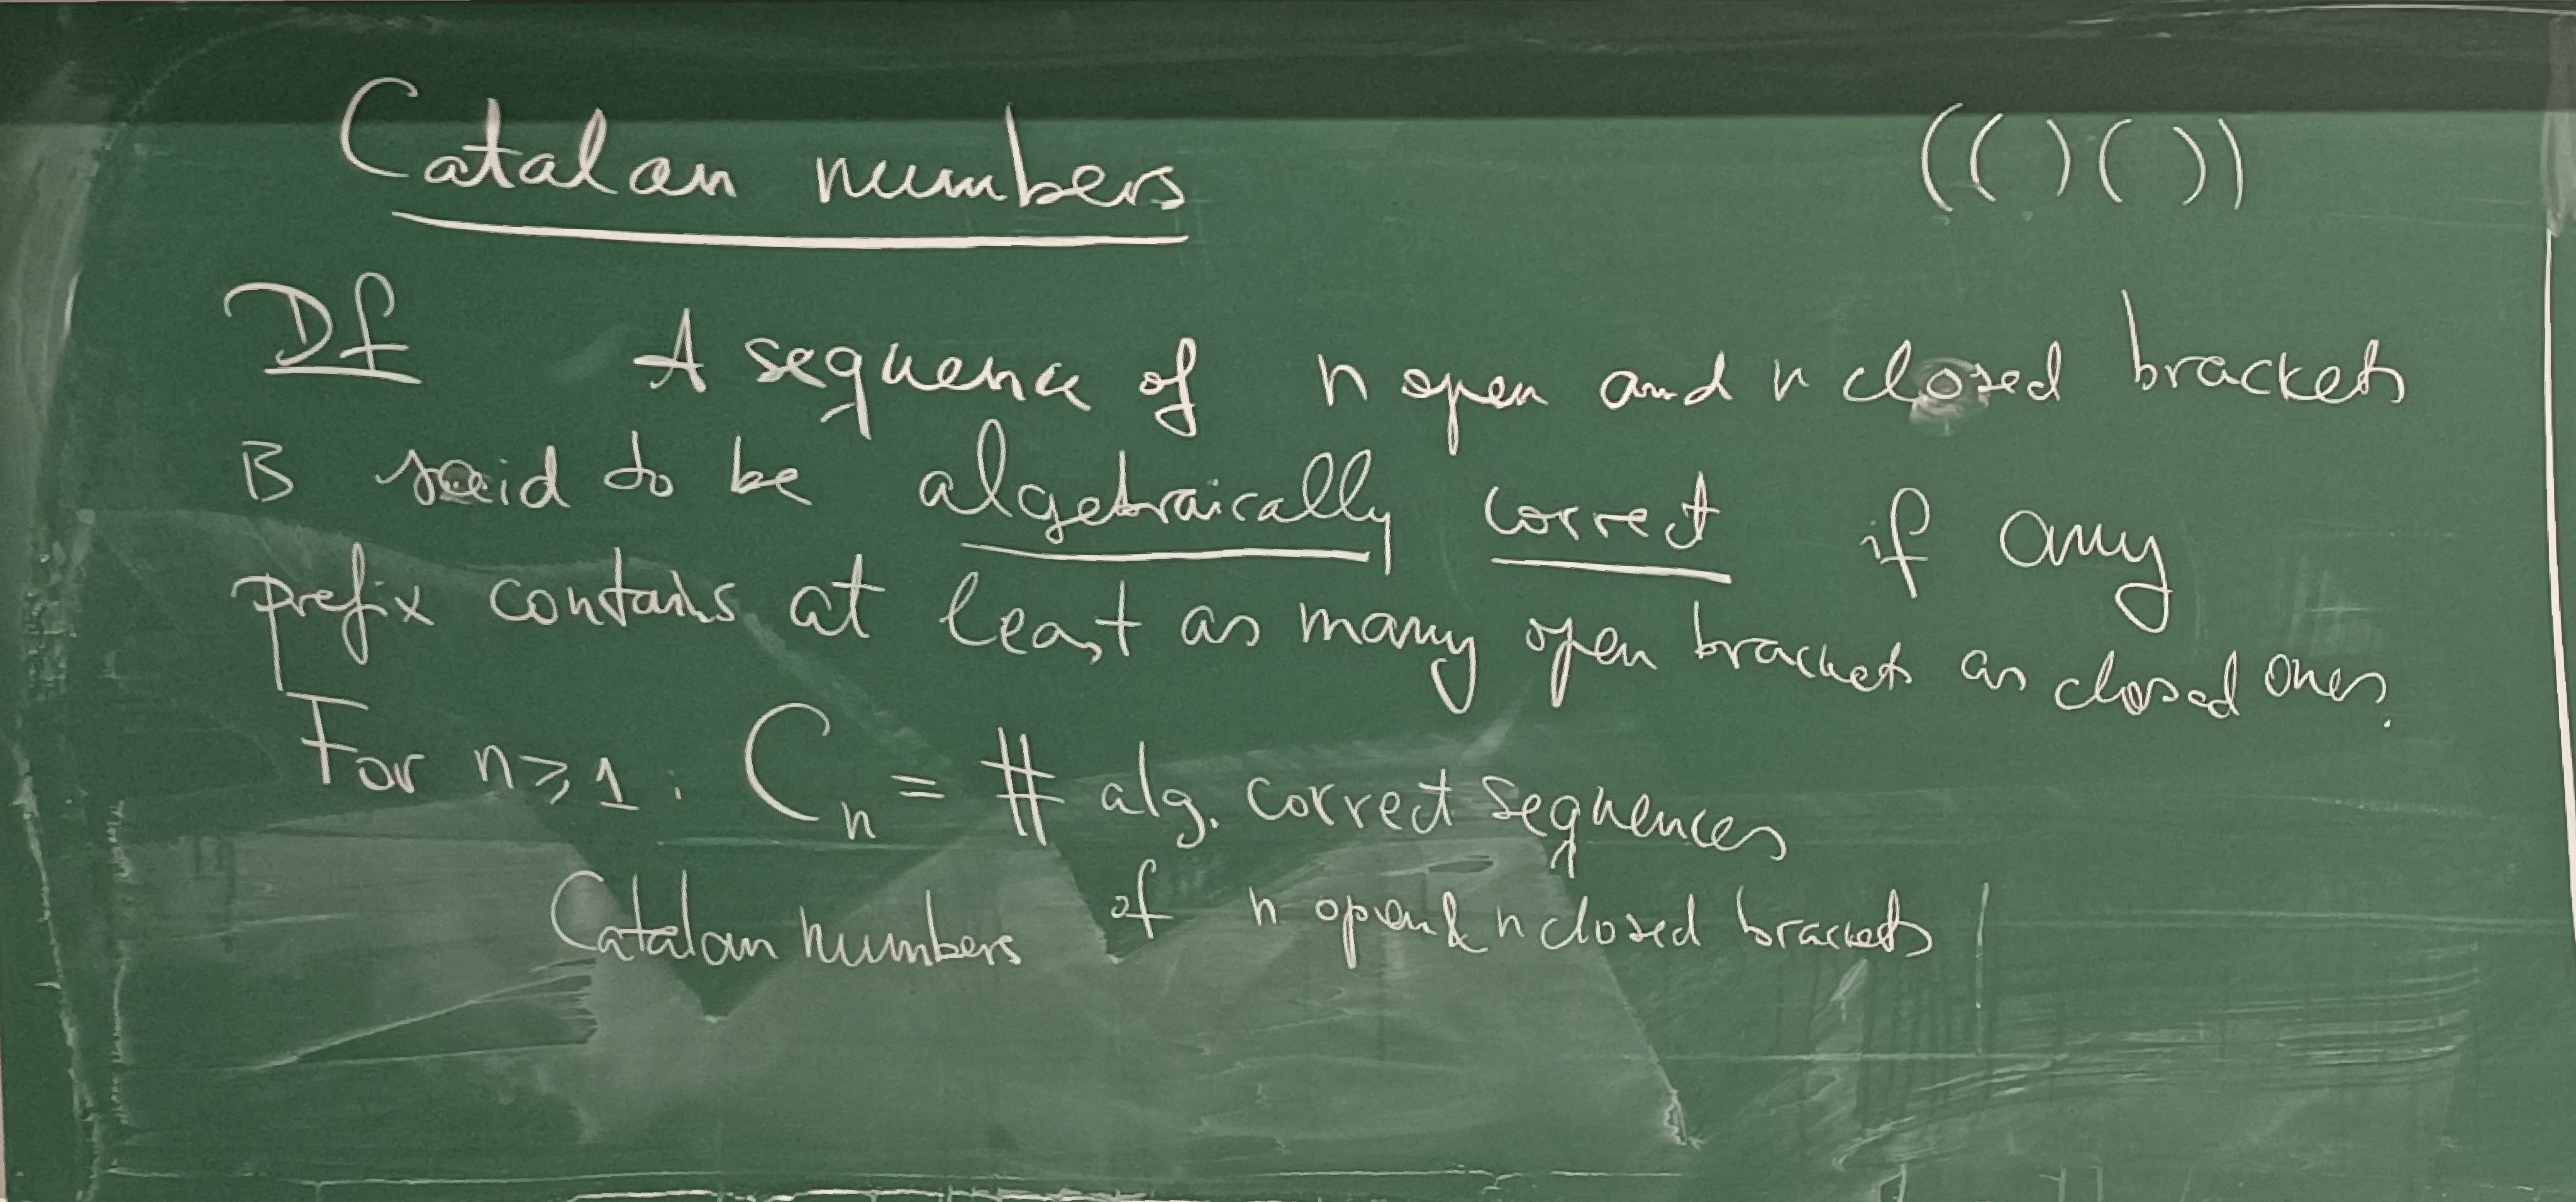 Catalan numbers (()())
Df A sequence of n open and n closed brackets
is said to be algebraically correct if any
prefix contains at least as many open brackets as closed ones.
For n≥1. Cn = # alg. correct sequences
Catalan numbers of n open & n closed brackets